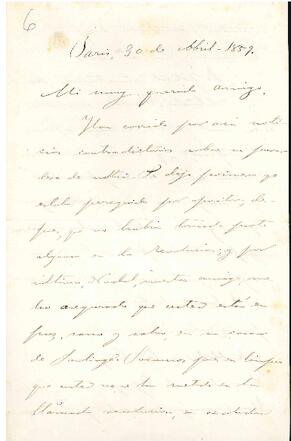 6
Paris, 30 de Abril - 1859.
Mi muy querido amigo,
Han corrido por aqui noti
cias contradictorias sobre su para
dero de usted. Se dijo primero que
estaba perseguido por
que, que no habia tomado parte
alguna en la revolucion; y por
ultimo, nuestro amigo, me
ha asegurado que usted está en
paz, sano y salvo en su casa
de Santiago.
que usted no se ha metido en la
llamada revolucion,